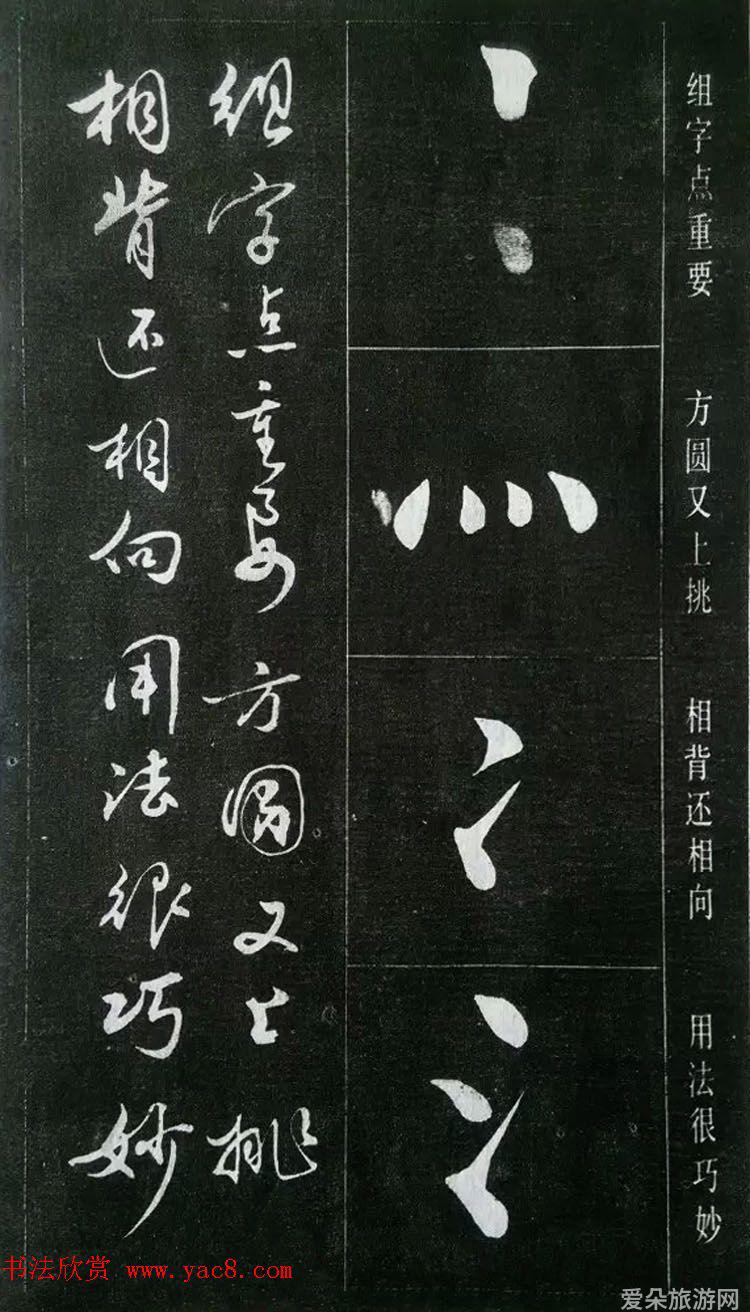 组字点重要
方圆又上挑
相背还相向
用法很巧妙
组字点重要方圆又上挑
相背还相向用法很巧妙
书法欣赏 www.yac8.com
爱朵旅游网